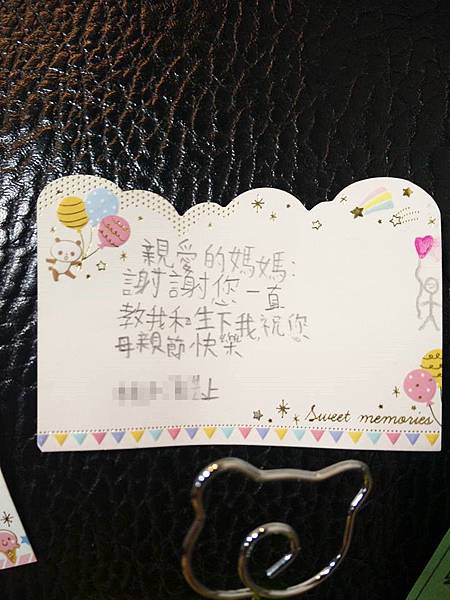 親愛的媽媽：
謝謝您一直
教我和生下我祝您
母親節快樂
上
Sweet memories